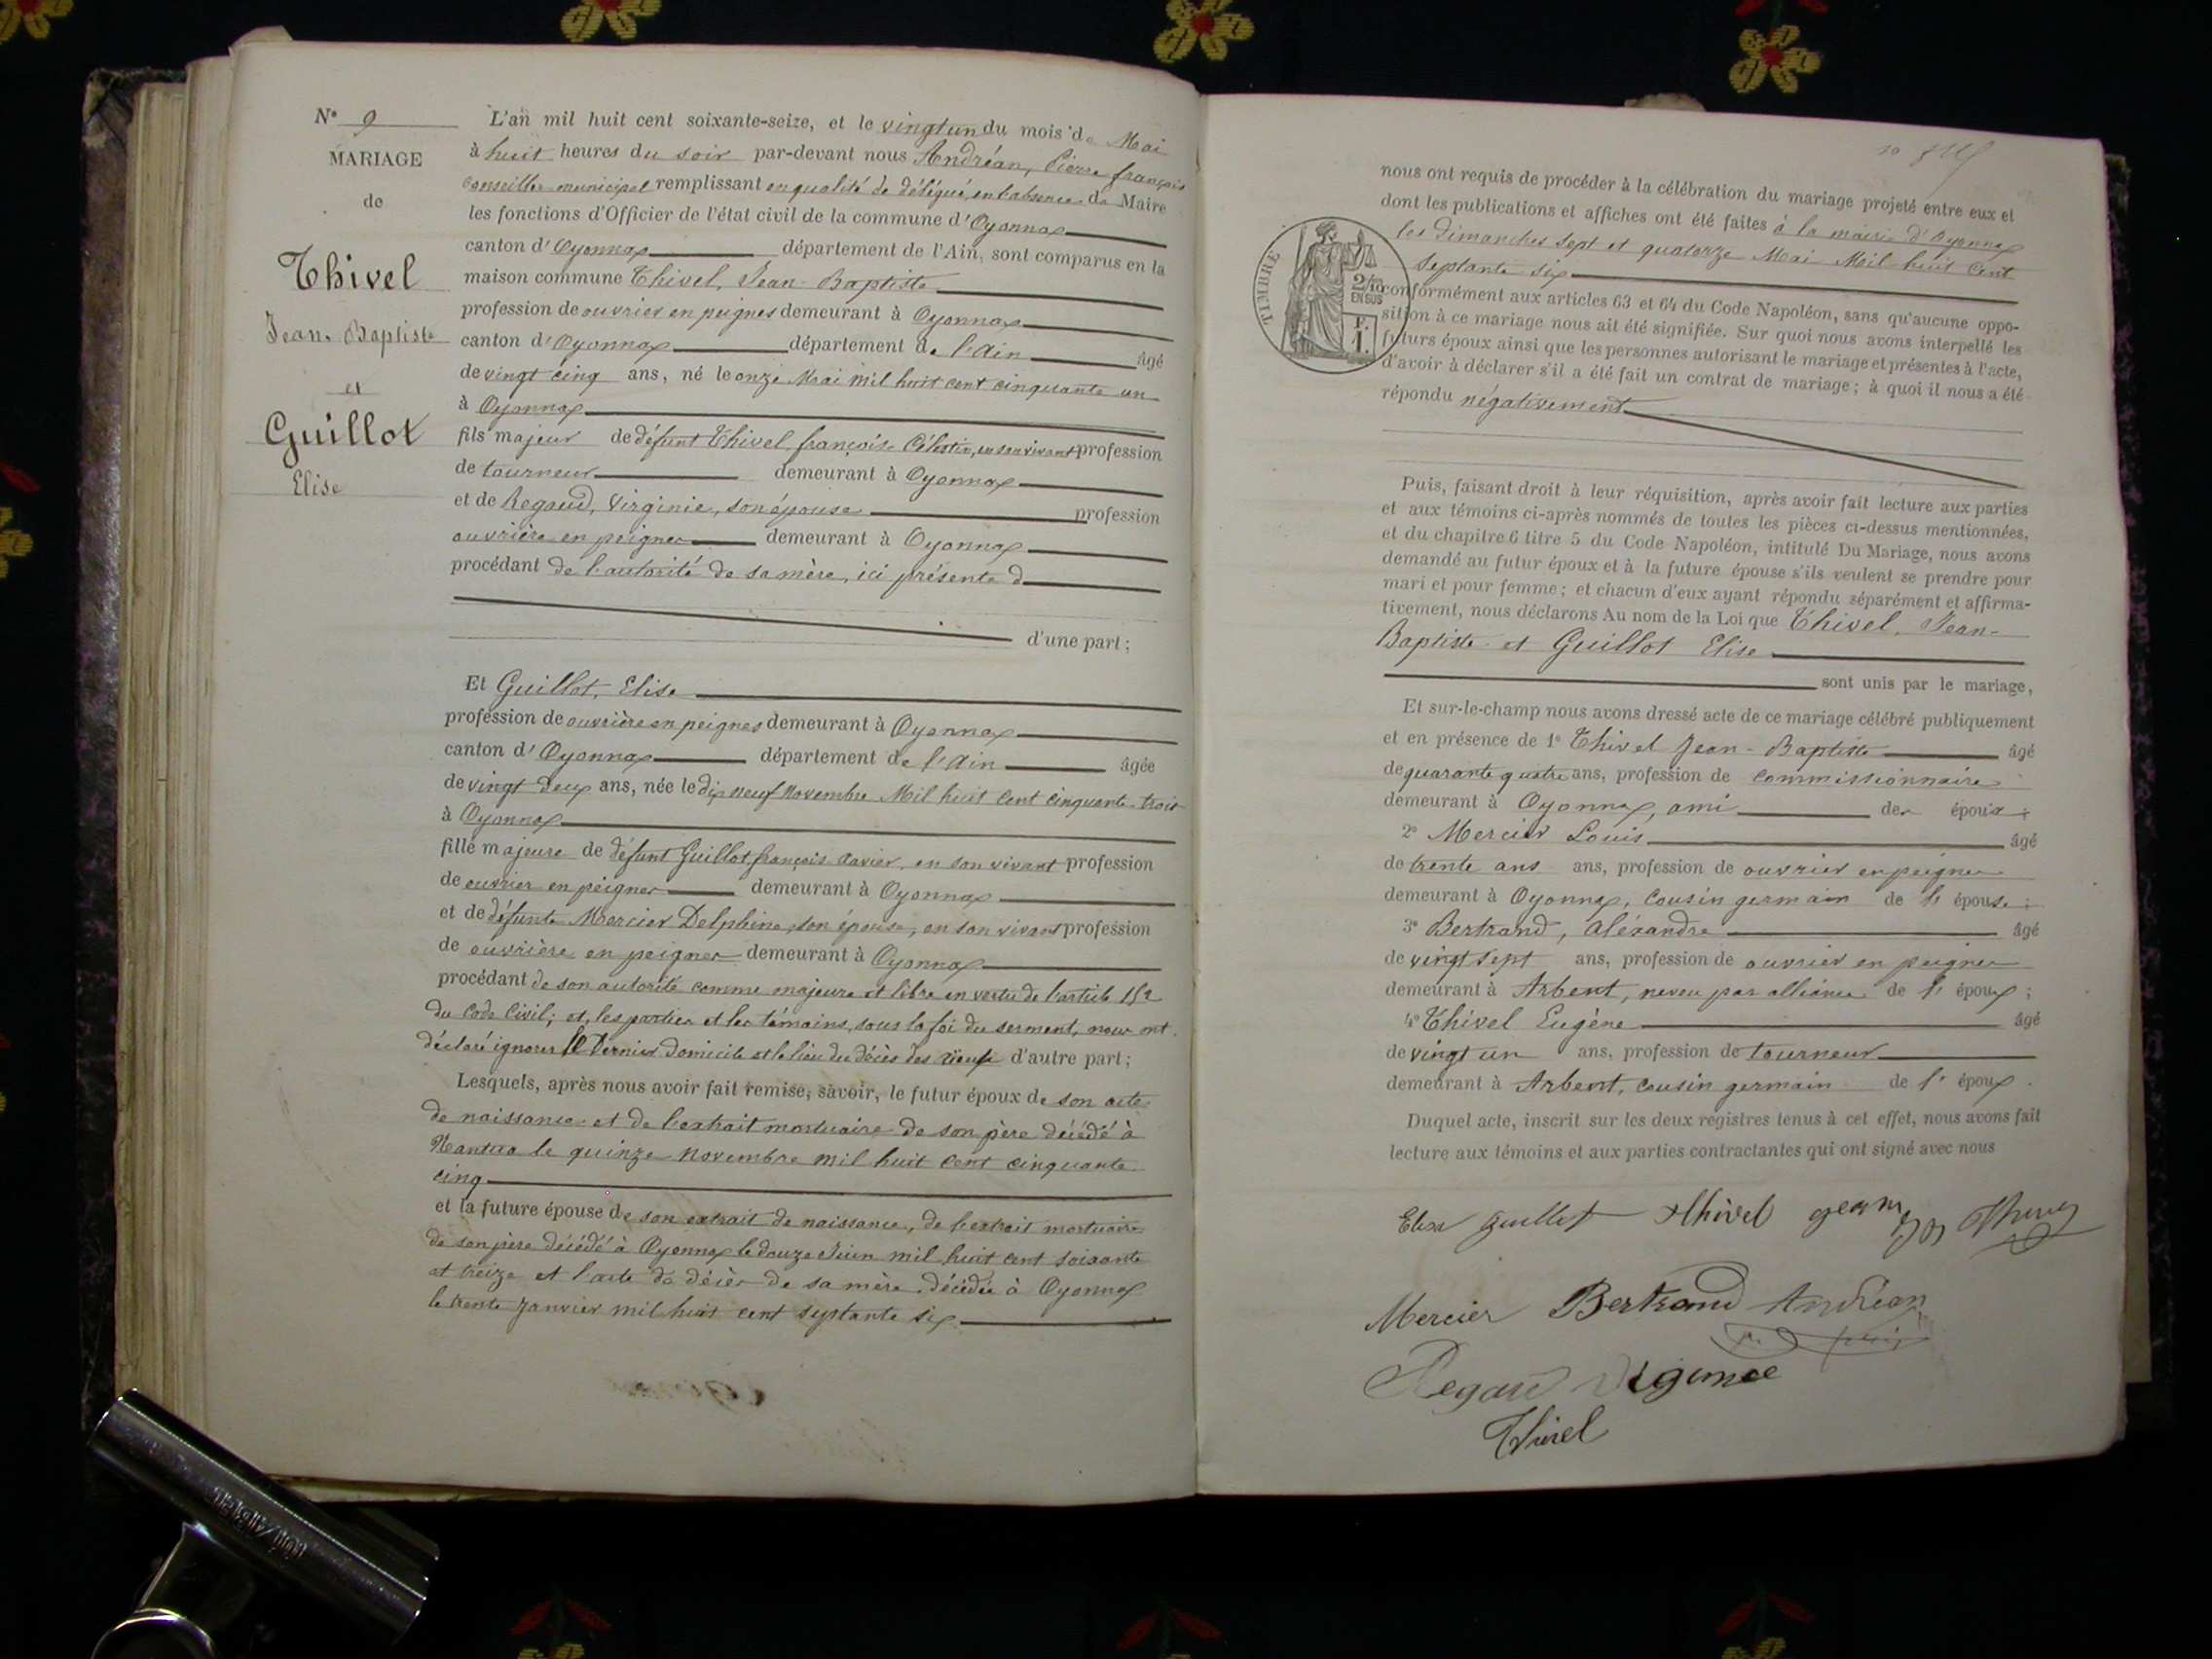 N° 9
MARIAGE
de
Thivel
Jean-Baptiste
et
Guillot
Elise
L'an mil huit cent soixante-seize, et le vingt un du mois de Mai
à huit heures du soir par-devant nous Andréan, Pierre françois
Conseiller municipal remplissant en qualité de délégué, en l'absence du Maire
les fonctions d'Officier de l'état civil de la commune d'Oyonnax
canton d'Oyonnax département de l'Ain, sont comparus en la
maison commune Thivel, Jean-Baptiste
profession de ouvrier en peignes demeurant à Oyonnax
canton d'Oyonnax département de l'Ain âgé
de vingt cinq ans, né le onze Mai mil huit cent cinquante un
à Oyonnax
fils majeur de défunt Thivel, françois Célestin, en son vivant profession
de tourneur demeurant à Oyonnax
et de Regaud, Virginie, son épouse profession
ouvrière en peignes demeurant à Oyonnax
procédant de l'autorité de sa mère, ici présente d
d'une part;
Et Guillot, Elise
profession de ouvrière en peignes demeurant à Oyonnax
canton d'Oyonnax département de l'Ain âgée
de vingt deux ans, née le dix neuf Novembre Mil huit cent cinquante trois
à Oyonnax
fille majeure de défunt Guillot, françois Xavier, en son vivant profession
de ouvrier en peignes demeurant à Oyonnax
et de défunte Mercier Delphine, son épouse, en son vivant profession
de ouvrière en peignes demeurant à Oyonnax
procédant de son autorité comme majeure et libre en vertu de l'article 152
du Code Civil; et, les parties et les témoins, sous la foi du serment, nous ont
déclaré ignorer le dernier domicile et le lieu du décès des aïeux d'autre part;
Lesquels, après nous avoir fait remise, savoir, le futur époux de son acte
de naissance et de l'extrait mortuaire de son père décédé à
Nantua le quinze Novembre mil huit cent cinquante
cinq
et la future épouse de son extrait de naissance, de l'extrait mortuaire
de son père décédé à Oyonnax le douze Juin mil huit cent soixante
et treize et l'acte de décès de sa mère, décédée à Oyonnax
le trente Janvier mil huit cent septante six
nous ont requis de procéder à la célébration du mariage projeté entre eux et
dont les publications et affiches ont été faites à la mairie d'Oyonnax
les dimanches sept et quatorze Mai Mil huit cent
septante six
TIMBRE
2/10
EN SUS
F.
1.
conformément aux articles 63 et 64 du Code Napoléon, sans qu'aucune oppo-
sition à ce mariage nous ait été signifiée. Sur quoi nous avons interpellé les
futurs époux ainsi que les personnes autorisant le mariage et présentes à l'acte,
d'avoir à déclarer s'il a été fait un contrat de mariage; à quoi il nous a été
répondu négativement
Puis, faisant droit à leur réquisition, après avoir fait lecture aux parties
et aux témoins ci-après nommés de toutes les pièces ci-dessus mentionnées,
et du chapitre 6 titre 5 du Code Napoléon, intitulé Du Mariage, nous avons
demandé au futur époux et à la future épouse s'ils veulent se prendre pour
mari et pour femme; et chacun d'eux ayant répondu séparément et affirma-
tivement, nous déclarons Au nom de la Loi que Thivel, Jean-
Baptiste et Guillot Elise
sont unis par le mariage,
Et sur-le-champ nous avons dressé acte de ce mariage célébré publiquement
et en présence de 1° Thivel Jean-Baptiste âgé
de quarante quatre ans, profession de commissionnaire
demeurant à Oyonnax, ami des époux;
2° Mercier Louis âgé
de trente ans ans, profession de ouvrier en peignes
demeurant à Oyonnax, cousin germain de l'épouse;
3° Bertrand, Aléxandre âgé
de vingt sept ans, profession de ouvrier en peignes
demeurant à Arbent, neveu par alliance de l'époux;
4° Thivel Eugène âgé
de vingt un ans, profession de tourneur
demeurant à Arbent, cousin germain de l'époux.
Duquel acte, inscrit sur les deux registres tenus à cet effet, nous avons fait
lecture aux témoins et aux parties contractantes qui ont signé avec nous
Elise Guillot Thivel Jean
Mercier Bertrand Andréan
Regaud Virginie
Thivel